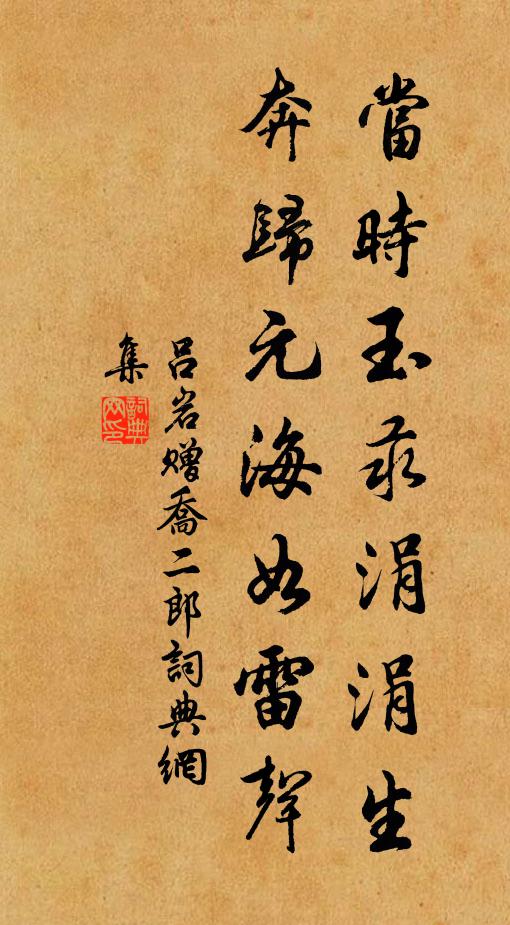 當時玉蕊涓涓生
奔歸元海如雷聲
呂岩贈喬二郎詞典網
集
詞典網印